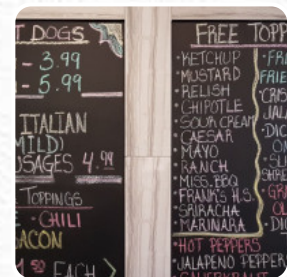 T DOGS
- 3.99
- 5.99
ITALIAN
MILD)
SAGES 4.99
TOPPINGS
· CHILI
BACON
EACH
FREE TOPP
· KETCHUP
· MUSTARD
· RELISH
· CHIPOTLE
· SOUR CREAM
· CAESAR
· MAYO
· RANCH
· MISS. BBQ
· FRANK'S H.S.
· SRIRACHA
· MARINARA
· HOT PEPPERS
· JALAPENO PEPPER
· SAUERKRAUT
· FR
FRIE
· CRIS
· DIC
· SL
SHRE
· GR
OL
· DI